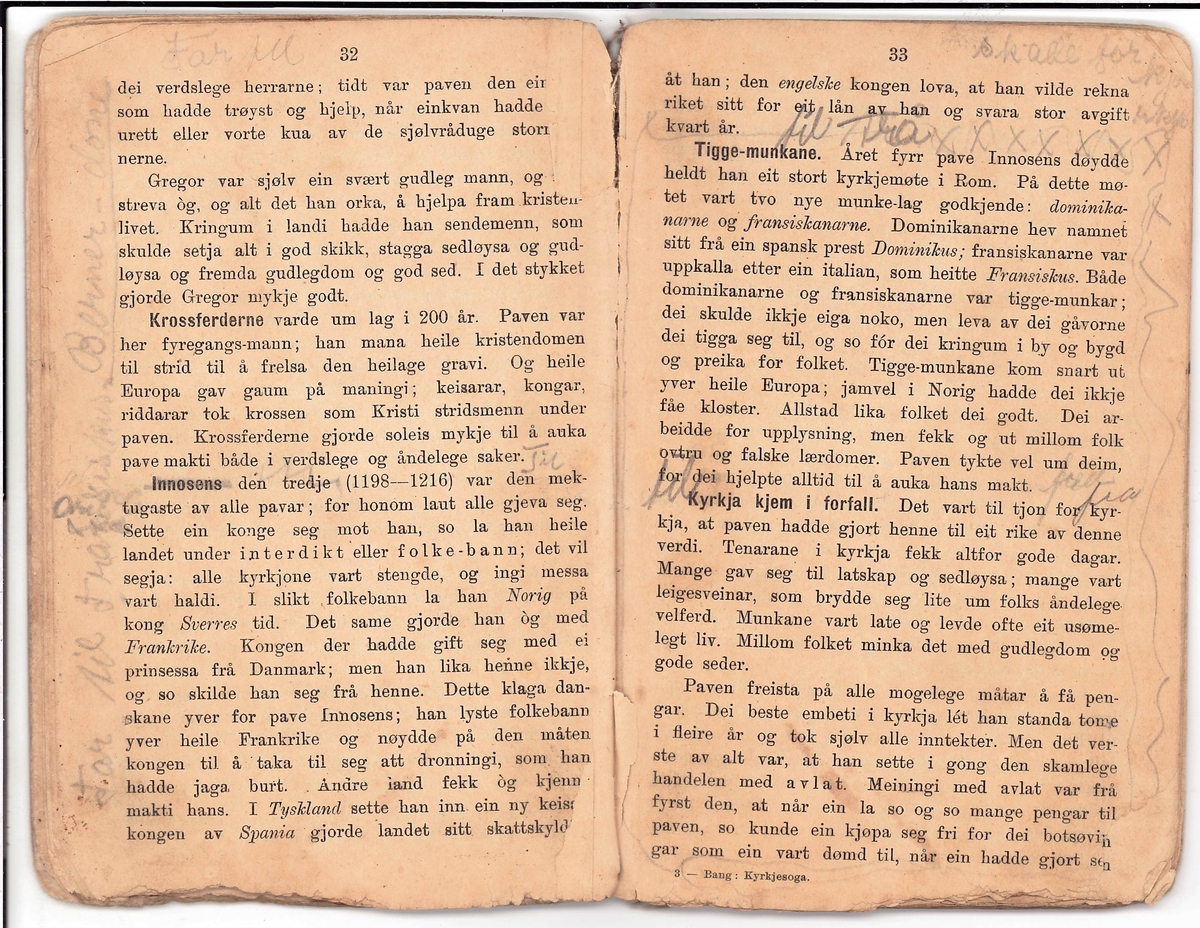 32
dei verdslege herrarne; tidt var paven den ein
som hadde trøyst og hjelp, når einkvan hadde
urett eller vorte kua av de sjølvråduge storm
nerne.
Gregor var sjølv ein svært gudleg mann, og
streva òg, og alt det han orka, å hjelpa fram kristen-
livet. Kringum i landi hadde han sendemenn, som
skulde setja alt i god skikk, stagga sedløysa og gud-
løysa og fremda gudlegdom og god sed. I det stykket
gjorde Gregor mykje godt.
Krossferderne varde um lag i 200 år. Paven var
her fyregangs-mann; han mana heile kristendomen
til strid til å frelsa den heilage gravi. Og heile
Europa gav gaum på maningi; keisarar, kongar,
riddarar tok krossen som Kristi stridsmenn under
paven. Krossferderne gjorde soleis mykje til å auka
pavemakti både i verdslege og åndelege saker. Til
Innosens den tredje (1198—1216) var den mek-
tugaste av alle pavar; for honom laut alle gjeva seg.
Sette ein konge seg mot han, so la han heile
landet under interdikt eller folke-bann; det vil
segja: alle kyrkjone vart stengde, og ingi messa
vart haldi. I slikt folkebann la han Norig på
kong Sverres tid. Det same gjorde han òg med
Frankrike. Kongen der hadde gift seg med ei
prinsessa frå Danmark; men han lika henne ikkje,
og so skilde han seg frå henne. Dette klaga dan-
skane yver for pave Innosens; han lyste folkebann
yver heile Frankrike og nøydde på den måten
kongen til å taka til seg att dronningi, som han
hadde jaga burt. Andre land fekk òg kjenn
makti hans. I Tyskland sette han inn ein ny keis
kongen av Spania gjorde landet sitt skattskyld
33
skade for
åt han; den engelske kongen lova, at han vilde rekna
riket sitt for eit lån av han og svara stor avgift
kvart år. til Frå
Tigge-munkane. Året fyrr pave Innosens døydde
heldt han eit stort kyrkjemøte i Rom. På dette mø-
tet vart tvo nye munke-lag godkjende: dominika-
narne og fransiskanarne. Dominikanarne hev namnet
sitt frå ein spansk prest Dominikus; fransiskanarne var
uppkalla etter ein italian, som heitte Fransiskus. Både
dominikanarne og fransiskanarne var tigge-munkar;
dei skulde ikkje eiga noko, men leva av dei gåvorne
dei tigga seg til, og so fór dei kringum i by og bygd
og preika for folket. Tigge-munkane kom snart ut
yver heile Europa; jamvel i Norig hadde dei ikkje
fåe kloster. Allstad lika folket dei godt. Dei ar-
beidde for upplysning, men fekk og ut millom folk
ovtru og falske lærdomer. Paven tykte vel um deim,
for dei hjelpte alltid til å auka hans makt.
til fra
Kyrkja kjem i forfall. Det vart til tjon for kyr-
kja, at paven hadde gjort henne til eit rike av denne
verdi. Tenarane i kyrkja fekk altfor gode dagar.
Mange gav seg til latskap og sedløysa; mange vart
leigesveinar, som brydde seg lite um folks åndelege
velferd. Munkane vart late og levde ofte eit usøme-
legt liv. Millom folket minka det med gudlegdom og
gode seder.
Paven freista på alle mogelege måtar å få pen-
gar. Dei beste embeti i kyrkja lét han standa tome
i fleire år og tok sjølv alle inntekter. Men det ver-
ste av alt var, at han sette i gong den skamlege
handelen med avlat. Meiningi med avlat var frå
fyrst den, at når ein la so og so mange pengar til
paven, so kunde ein kjøpa seg fri for dei botsøvin
gar som ein vart dømd til, når ein hadde gjort sen
3 — Bang: Kyrkjesoga.